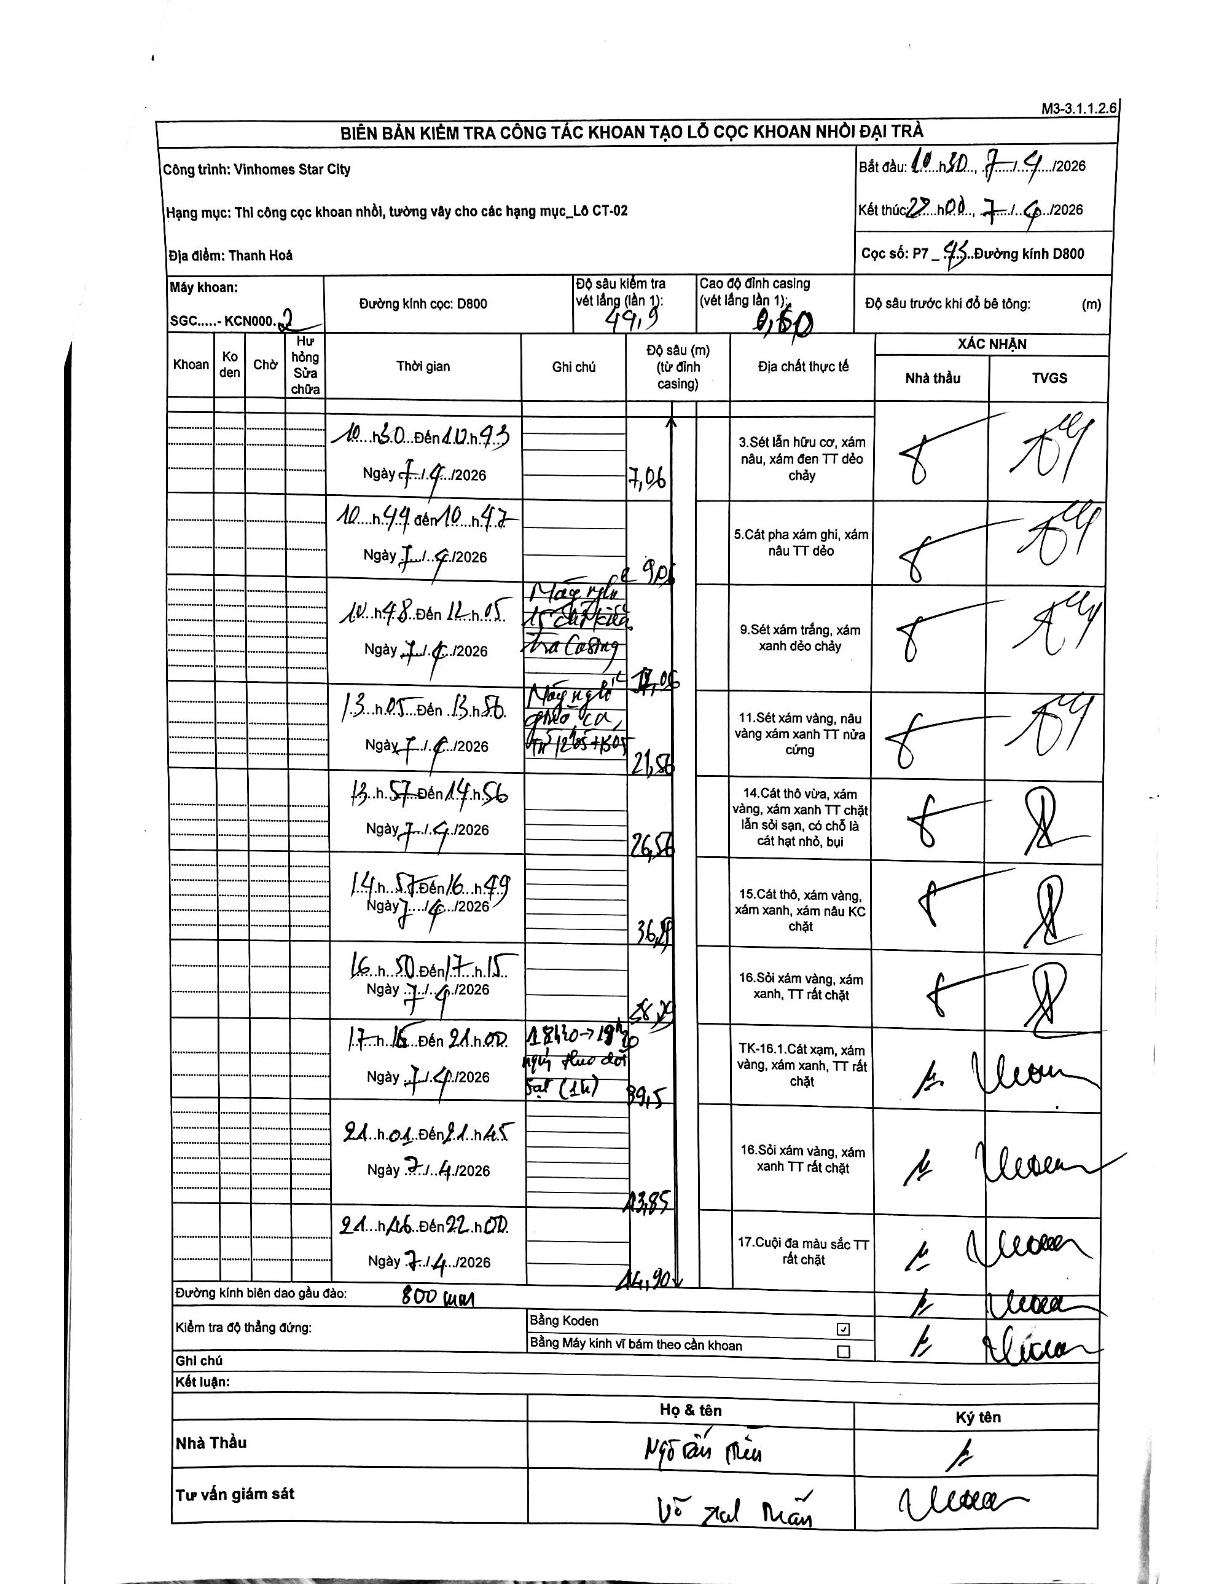 M3-3.1.1.2.6
BIÊN BẢN KIỂM TRA CÔNG TÁC KHOAN TẠO LỖ CỌC KHOAN NHỒI ĐẠI TRÀ
Công trình: Vinhomes Star City
Bắt đầu: 10 h 30, 7/4/2026
Hạng mục: Thi công cọc khoan nhồi, tường vây cho các hạng mục_Lô CT-02
Kết thúc: 22 h 00, 7/4/2026
Địa điểm: Thanh Hoá
Cọc số: P7_ Đường kính D800
Máy khoan:
SGC.....- KCN000.2
Đường kính cọc: D800
Độ sâu kiểm tra
vét lắng (lần 1):
49,9
Cao độ đỉnh casing
(vét lắng lần 1):
0,60
Độ sâu trước khi đổ bê tông: (m)
Khoan
Ko
den
Chờ
Hư
hỏng
Sửa
chữa
Thời gian
Ghi chú
Độ sâu (m)
(từ đỉnh
casing)
Địa chất thực tế
XÁC NHẬN
Nhà thầu
TVGS
10 h 30 Đến 10 h 43
Ngày 7/4/2026
7,06
3.Sét lẫn hữu cơ, xám
nâu, xám đen TT dẻo
chảy
10 h 44 đến 10 h 47
Ngày 7/4/2026
9,06
5.Cát pha xám ghi, xám
nâu TT dẻo
10 h 48 Đến 12 h 05
Ngày 7/4/2026
Máy nghỉ
tra Casing
9.Sét xám trắng, xám
xanh dẻo chảy
13 h 05 Đến 13 h 56
Ngày 7/4/2026
Máy nghỉ
giao ca,
từ 12h05→13h05
21,56
11.Sét xám vàng, nâu
vàng xám xanh TT nửa
cứng
13 h 57 Đến 14 h 56
Ngày 7/4/2026
26,56
14.Cát thô vừa, xám
vàng, xám xanh TT chặt
lẫn sỏi sạn, có chỗ là
cát hạt nhỏ, bụi
14 h 57 Đến 16 h 49
Ngày 7/4/2026
36,29
15.Cát thô, xám vàng,
xám xanh, xám nâu KC
chặt
16 h 50 Đến 17 h 15
Ngày 7/4/2026
38,29
16.Sỏi xám vàng, xám
xanh, TT rất chặt
17 h 16 Đến 21 h 00
Ngày 7/4/2026
18h20→19h20
nghỉ theo dõi
sạt (1h)
39,5
TK-16.1.Cát xạm, xám
vàng, xám xanh, TT rất
chặt
21 h 01 Đến 21 h 45
Ngày 7/4/2026
43,85
16.Sỏi xám vàng, xám
xanh TT rất chặt
21 h 46 Đến 22 h 00
Ngày 7/4/2026
44,90
17.Cuội đa màu sắc TT
rất chặt
Đường kính biên dao gầu đào: 800 mm
Kiểm tra độ thẳng đứng:
Bằng Koden
Bằng Máy kinh vĩ bám theo cần khoan
Ghi chú
Kết luận:
Họ & tên
Ký tên
Nhà Thầu
Ngô
Tư vấn giám sát
Võ